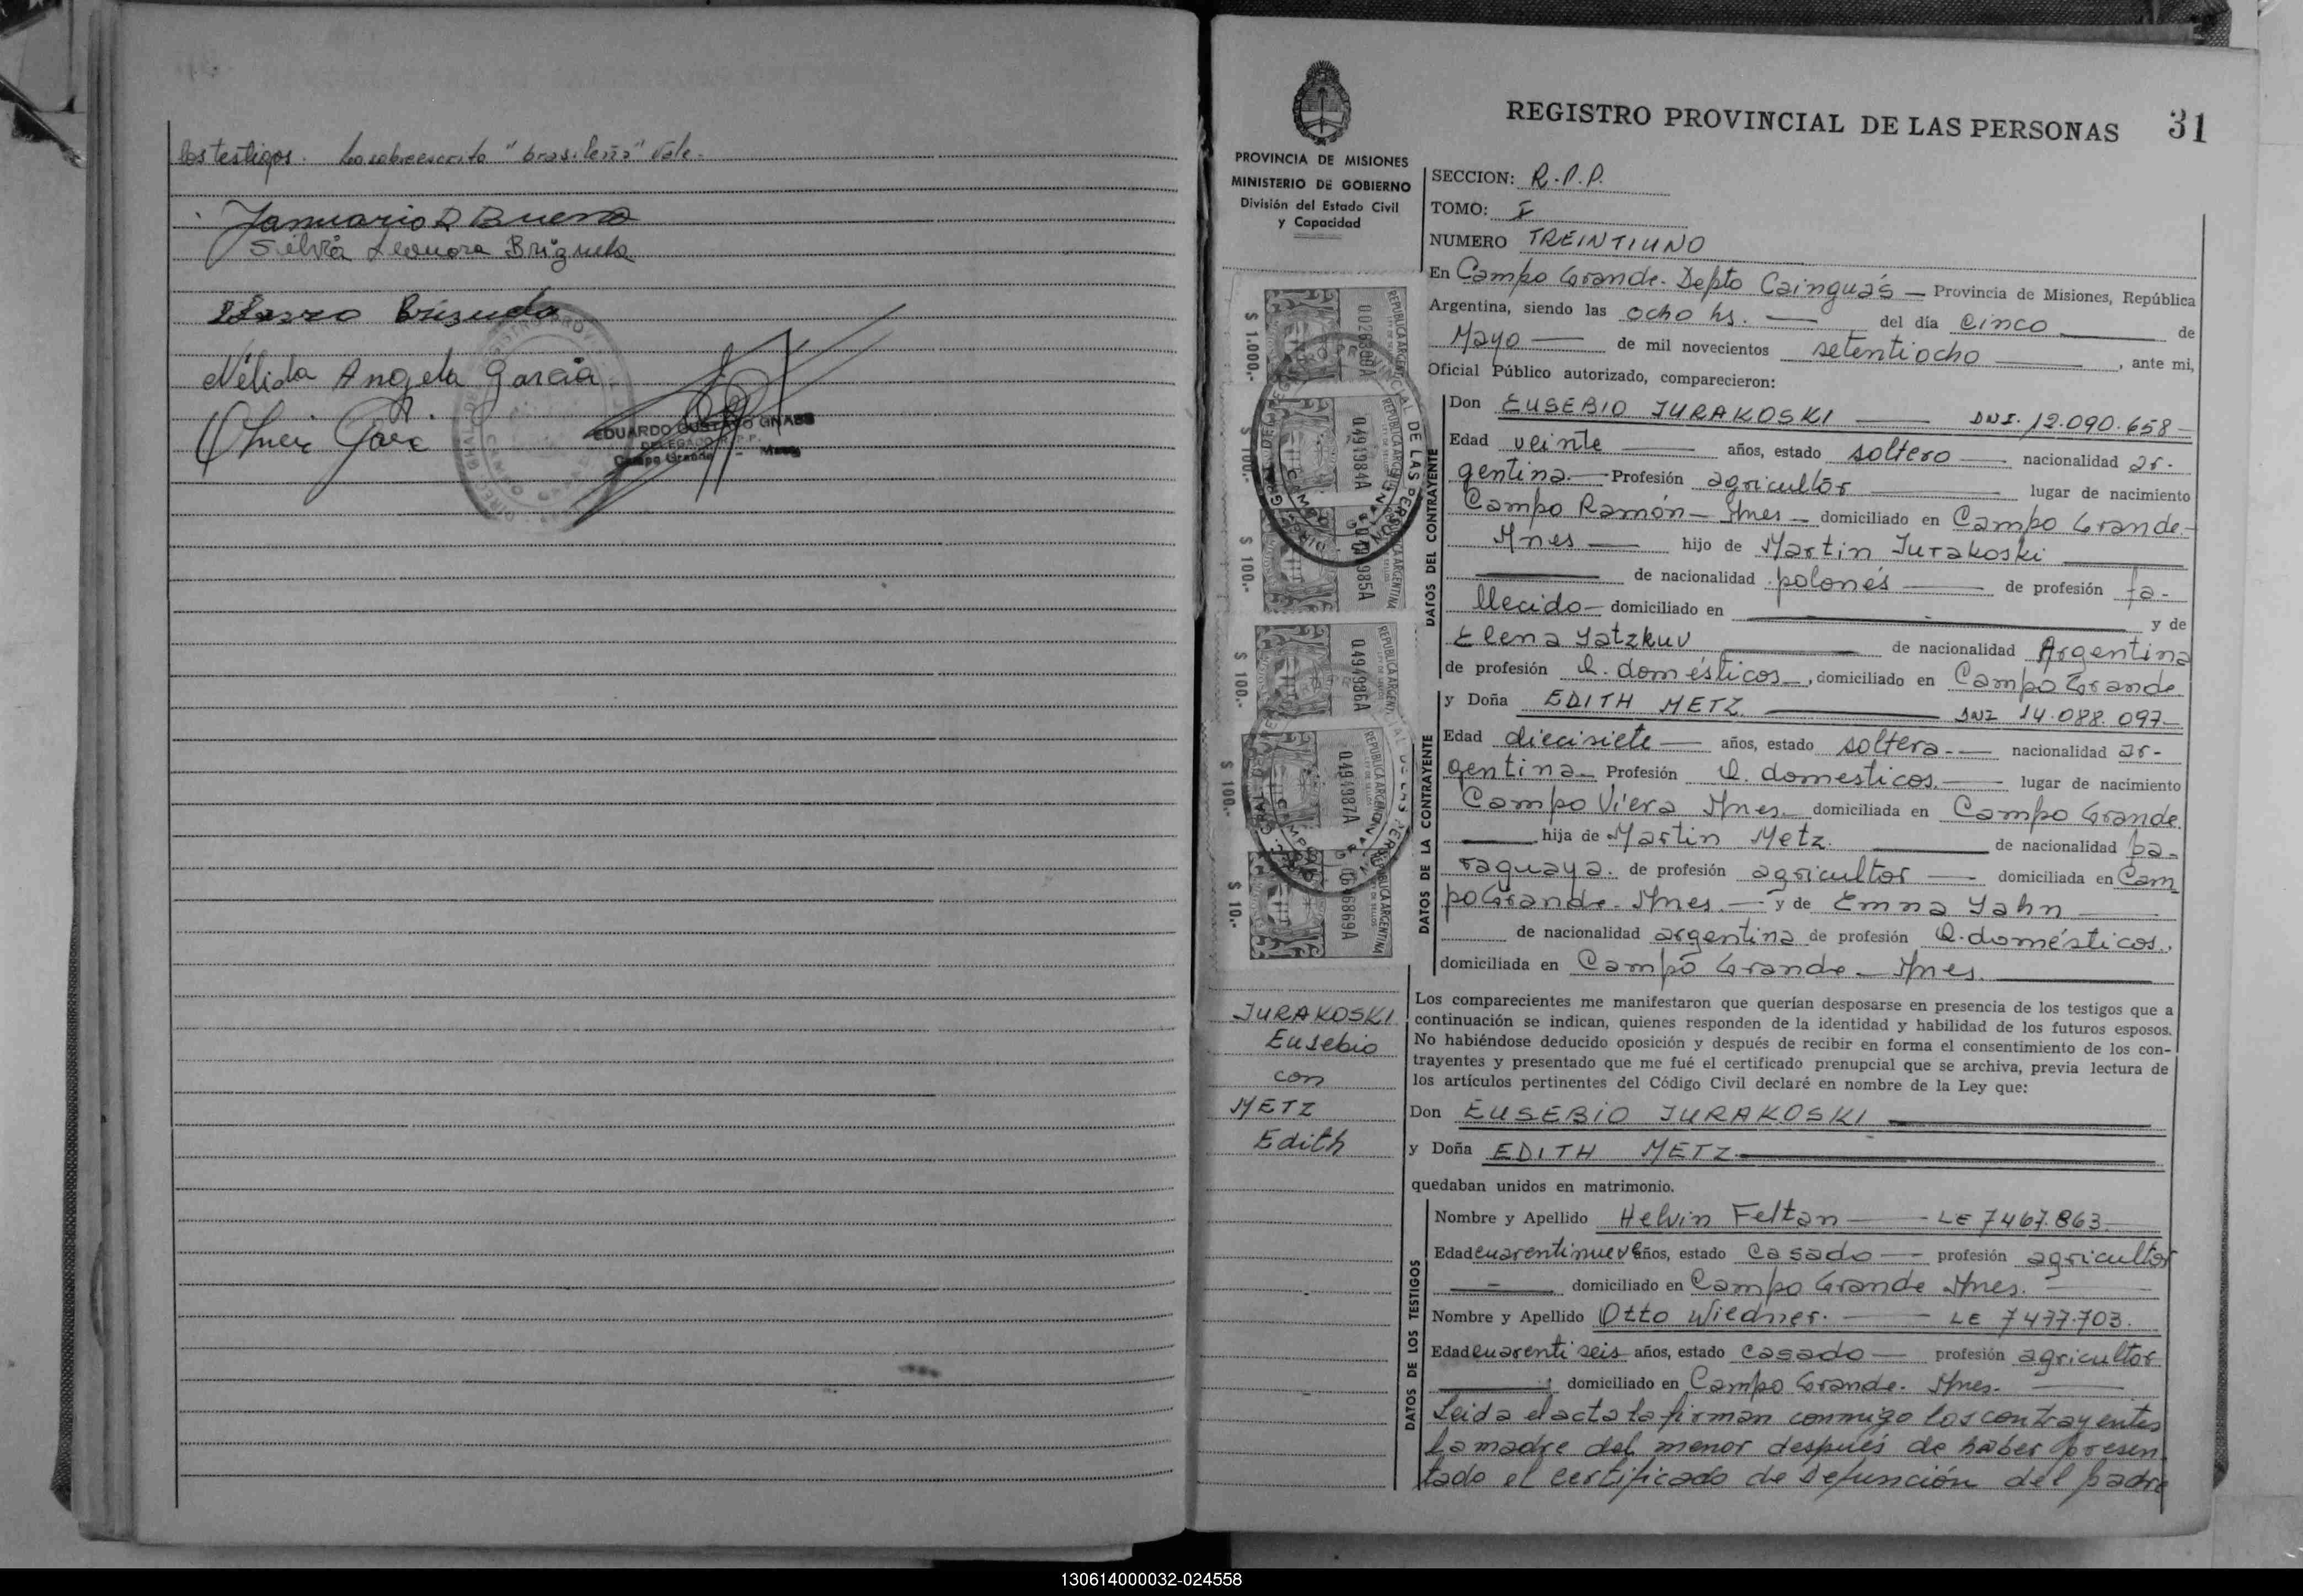 los testigos. Lo sobreescrito "brasileña" Vale.-
Januario R Bueno
Silvia Leonora Brizuela
Brizuela
Nélida Angela Garcia
EDUARDO GUSTAVO GNASS
DELEGADO R.P.P.
Campo Grande - Mnes
REGISTRO PROVINCIAL DE LAS PERSONAS 31
PROVINCIA DE MISIONES
MINISTERIO DE GOBIERNO
División del Estado Civil
y Capacidad
SECCION: R.P.P.
TOMO: I
NUMERO TREINTIUNO
En Campo Grande. Depto Cainguás — Provincia de Misiones, República
Argentina, siendo las ocho hs. — del día cinco — de
Mayo — de mil novecientos setentiocho —, ante mi,
Oficial Público autorizado, comparecieron:
DATOS DEL CONTRAYENTE
Don EUSEBIO JURAKOSKI — DNI. 12.090.658-
Edad veinte — años, estado soltero — nacionalidad ar-
gentina.— Profesión agricultor — lugar de nacimiento
Campo Ramón — Mnes — domiciliado en Campo Grande.-
Mnes — hijo de Martin Jurakoski —
— de nacionalidad polonés — de profesión fa-
llecido — domiciliado en — y de
Elena Yatzkuv — de nacionalidad Argentina
de profesión Q. domésticos —, domiciliado en Campo Grande
DATOS DE LA CONTRAYENTE
y Doña EDITH METZ — DNI 14.088.097-
Edad diecisiete — años, estado soltera.- — nacionalidad ar-
gentina — Profesión Q. domesticos. — lugar de nacimiento
Campo Viera Mnes — domiciliada en Campo Grande
— hija de Martin Metz. — de nacionalidad pa-
raguaya. de profesión agricultor — domiciliada en Cam
po Grande. Mnes. — y de Emma Yahn —
de nacionalidad argentina de profesión Q. domésticos.
domiciliada en Campo Grande — Mnes. —
Los comparecientes me manifestaron que querían desposarse en presencia de los testigos que a
continuación se indican, quienes responden de la identidad y habilidad de los futuros esposos.
No habiéndose deducido oposición y después de recibir en forma el consentimiento de los con-
trayentes y presentado que me fué el certificado prenupcial que se archiva, previa lectura de
los artículos pertinentes del Código Civil declaré en nombre de la Ley que:
JURAKOSKI
Eusebio
con
METZ
Edith
Don EUSEBIO JURAKOSKI —
y Doña EDITH METZ —
quedaban unidos en matrimonio.
DATOS DE LOS TESTIGOS
Nombre y Apellido Helvin Feltan — LE 7467.863
Edad cuarentinueve años, estado casado — profesión agricultor
— domiciliado en Campo Grande Mnes. —
Nombre y Apellido Otto Wiedner. — LE 7477.703.
Edad cuarenti seis años, estado casado — profesión agricultor
— domiciliado en Campo Grande. Mnes. —
Leida el acta la firman conmigo los contrayentes
La madre del menor después de haber presen
tado el certificado de Defunción del padre
$ 1.000.-
$ 100.-
$ 100.-
$ 100.-
$ 100.-
$ 10.-
REPUBLICA ARGENTINA
0.4941984A
0.4941986A
0.4941987A
130614000032-024558